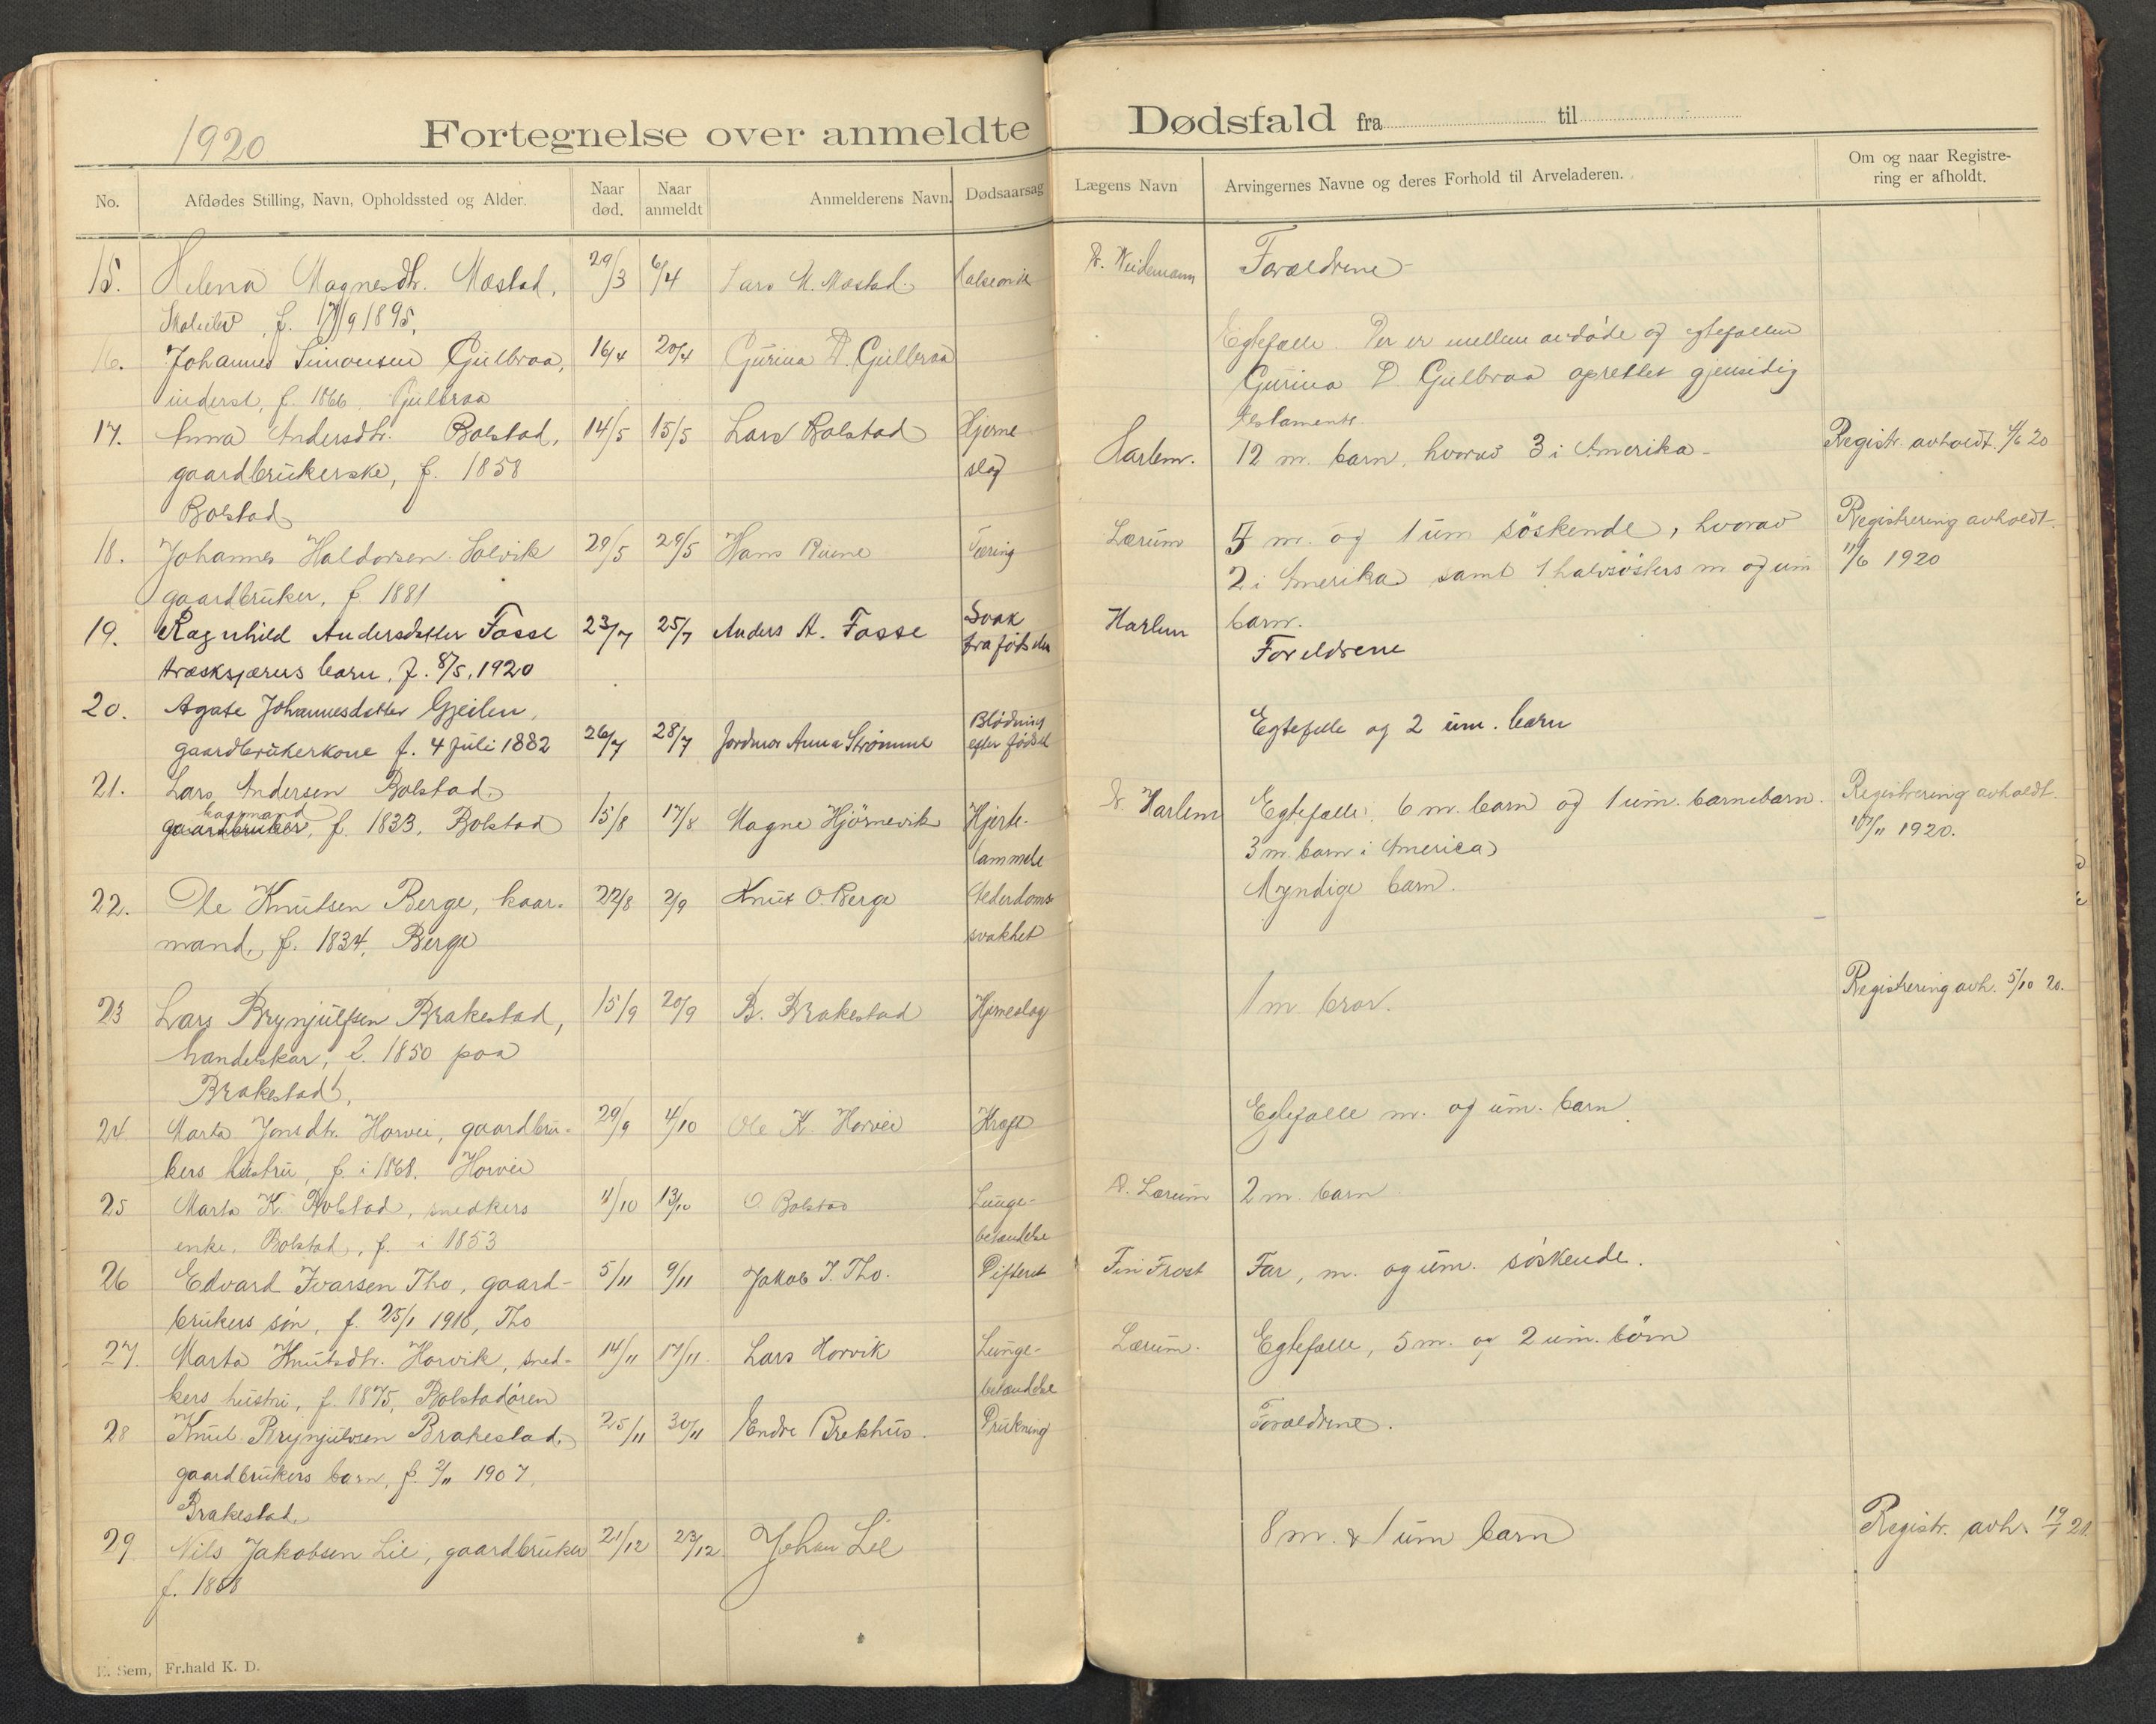 1920
Fortegnelse over anmeldte Dødsfald fra til
No.
Afdødes Stilling, Navn, Opholdssted og Alder.
Naar død.
Naar anmeldt
Anmelderens Navn.
Dødsaarsag
Lægens Navn
Arvingernes Navne og deres Forhold til Arveladeren.
Om og naar Registre-
ring er afholdt.
15. Helena Magnesdtr. Mostad, 29/3 6/4 Lars M. Mostad. Dr. Heidemann Forældrene
f. 17/9 1895.
16. Johannes Simonsen Gülbraa, 16/4 20/4 Gürina D. Gülbraa Egtefælle. Der er mellem avdøde og egtefællen
inderst, f. 1866. Gülbraa Gürina D Gülbraa oprettet gjensidig
testamente.
17. Anna Andersdtr. Bolstad, 14/5 15/5 Lars Bolstad Hjerne Harlem. 12 m. barn, hvorav 3 i Amerika Registr. avholdt 4/6 20
gaardbrükerske, f. 1858 slag
Bolstad
18. Johannes Haldorsen Solvik 29/5 29/5 Hans Tæring Lærüm 5 m. og 1 üm søskende, hvorav Registrering avholdt
gaardbrüker, f 1881 2 i Amerika samt 1 halvsøsters m og üm 11/6 1920
barn.
19. Ragnhild Andersdatter Fosse 23/7 25/7 Anders A. Fosse Svak Harlem Foreldrene
træskjærers barn, f. 8/5. 1920 fra fødselen
20. Agate Johannesdatter Gjeilen,
gaardbrükerkone f. 4 Jüli 1882 26/7 28/7 Jordmor Anna Strømme Blødning Egtefelle og 2 üm. barn
efter fødsel
21. Lars Andersen Bolstad,
kaarmand
gaardbrüker, f. 1833, Bolstad 15/8 17/8 Magne Hjørnevik Hjerte- Dr. Harlem Egtefælle, 6 m. barn og 1 üm. barnebarn. Registrering avholdt
lammelse 3 m. barn i America /11 1920.
22. Ole Knütsen Berge, kaar- 22/8 2/9 Knüt O Berge Alderdoms- Myndige barn.
mand, f. 1834, Berge svakhet
23 Lars Brynjülfsen Brakestad, 15/9 20/9 B. Brakestad Hjerneslag 1 m. bror. Registrering avh. 5/10 20.
handelskar, f. 1850 paa
Brakestad,
24 Marta Jonsdtr. Horvei, gaardbrü- 29/9 4/10 Ole K. Horvei Kræft Egtefælle m. og üm. barn.
kers hüstrü, f. i 1868. Horvei
25 Marta K. Bolstad, snedkers 11/10 13/10 O Bolstad Lünge- Dr. Lærüm 2 m. barn.
enke, Bolstad, f. i 1853 betændelse
26 Edvard Ivarsen Tho, gaard- 5/11 9/11 Jakob I. Tho. Difterit Fin Frost Far, m. og üm. søskende.
brükers søn, f. 25/1 1916, Tho
27. Marta Knütsdtr. Horvik, sned- 14/11 17/11 Lars Horvik Lünge- Lærüm. Egtefælle, 5 m. og 2 üm. børn
kers hüstrü, f. 1875, Bolstadøren betændelse
28 Knüt Brynjülvsen Brakestad, 25/11 30/11 Endre Brekhüs. Drükning Forældrene.
gaardbrükers barn, f. 2/11 1907,
Brakestad
29 Nils Jakobsen Lie, gaardbrüker 21/12 23/12 Johan Lie 8 m. & 1 üm barn Registr. avh. 19/1 21.
f. 1868
E. Sem, Fr.hald K. D.